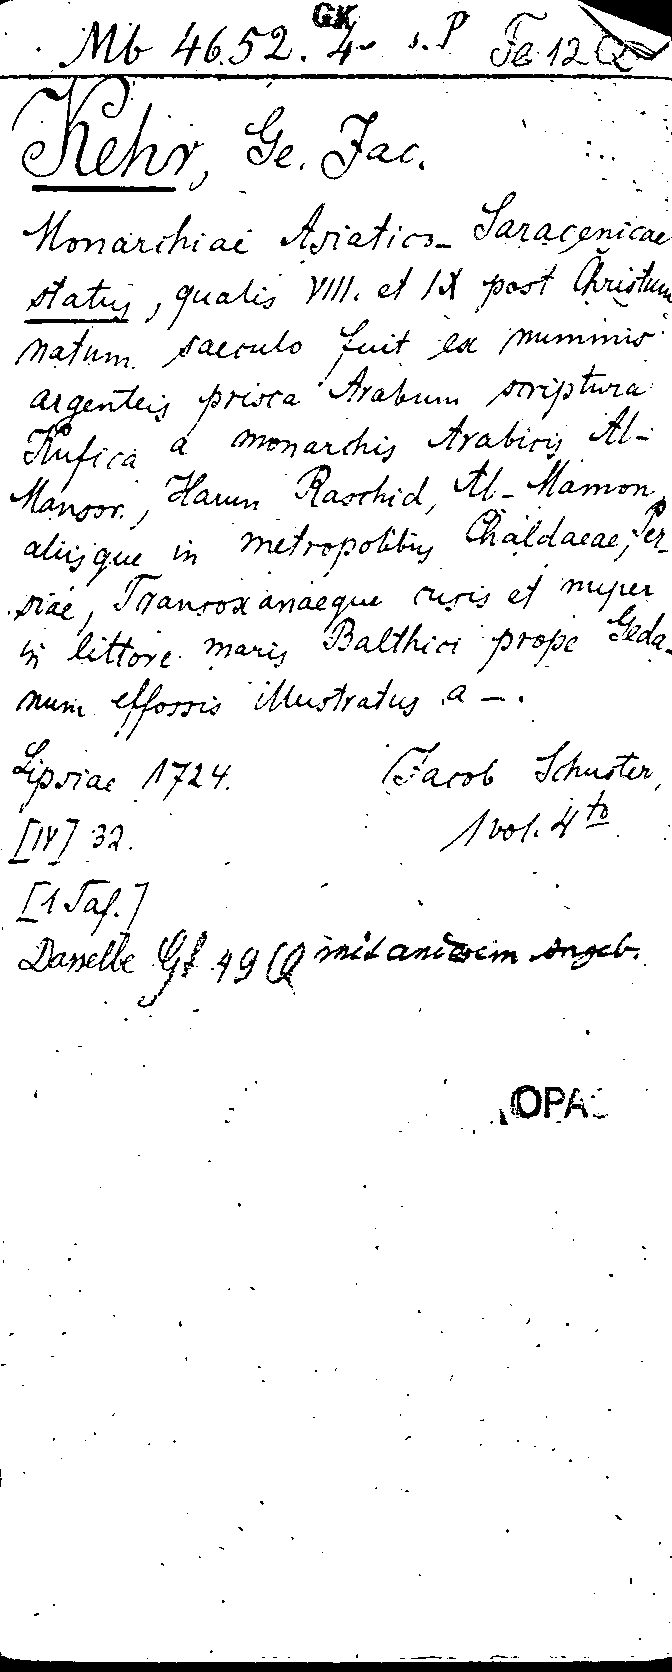 GK
Mb 4652. 4° s. P Fe 12 Q
Kehr, Ge. Jac.
Monarchiae Asiatico-Saracenicae
status, qualis VIII. et IX post Christum
natum saeculo fuit ex nummis
argenteis prisca Arabum scriptura
Kufica a monarchis Arabicis Al-
Mansor, Harun Raschid, Al-Mamon,
aliisque in metropolibus Chaldaeae, Per-
siae, Transoxanaeque cusis et nuper
in littore maris Balthici prope Geda-
num effossis illustratus a —.
Lipsiae 1724. Jacob Schuster,
[IV] 32. 1 vol. 4to
[1 Taf.]
Dasselbe Gf 49 Q mit anderem Angeb.
OPAC